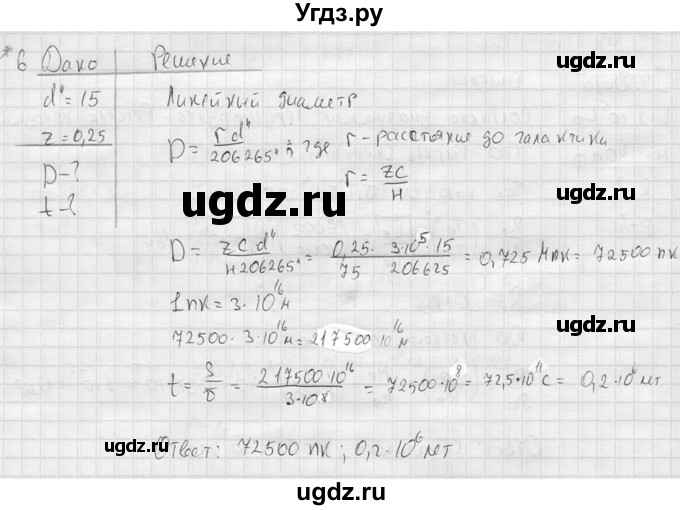 Угдз.ру
* 6 Дано Решение
d" = 15 Линейный диаметр
z = 0,25 D = r d" / 206265" ; где r - расстояние до галактики
D - ? r = zc / H
t - ?
D = z c d" / H 206265" = 0,25 · 3·10⁵ · 15 / 75 206625 = 0,725 Мпк = 72500 пк
1 пк = 3 · 10¹⁶ м
72500 · 3·10¹⁶ м = 217500·10¹⁶ м
t = S / υ = 217500·10¹⁶ / 3·10⁸ = 72500·10⁸ = 72,5·10¹¹ с = 0,2·10⁶ лет
Ответ: 72500 пк ; 0,2·10⁶ лет
ugdz.ru
ugdz.ru
ugdz.ru
ugdz.ru
ugdz.ru
ugdz.ru
ugdz.ru
ugdz.ru
ugdz.ru